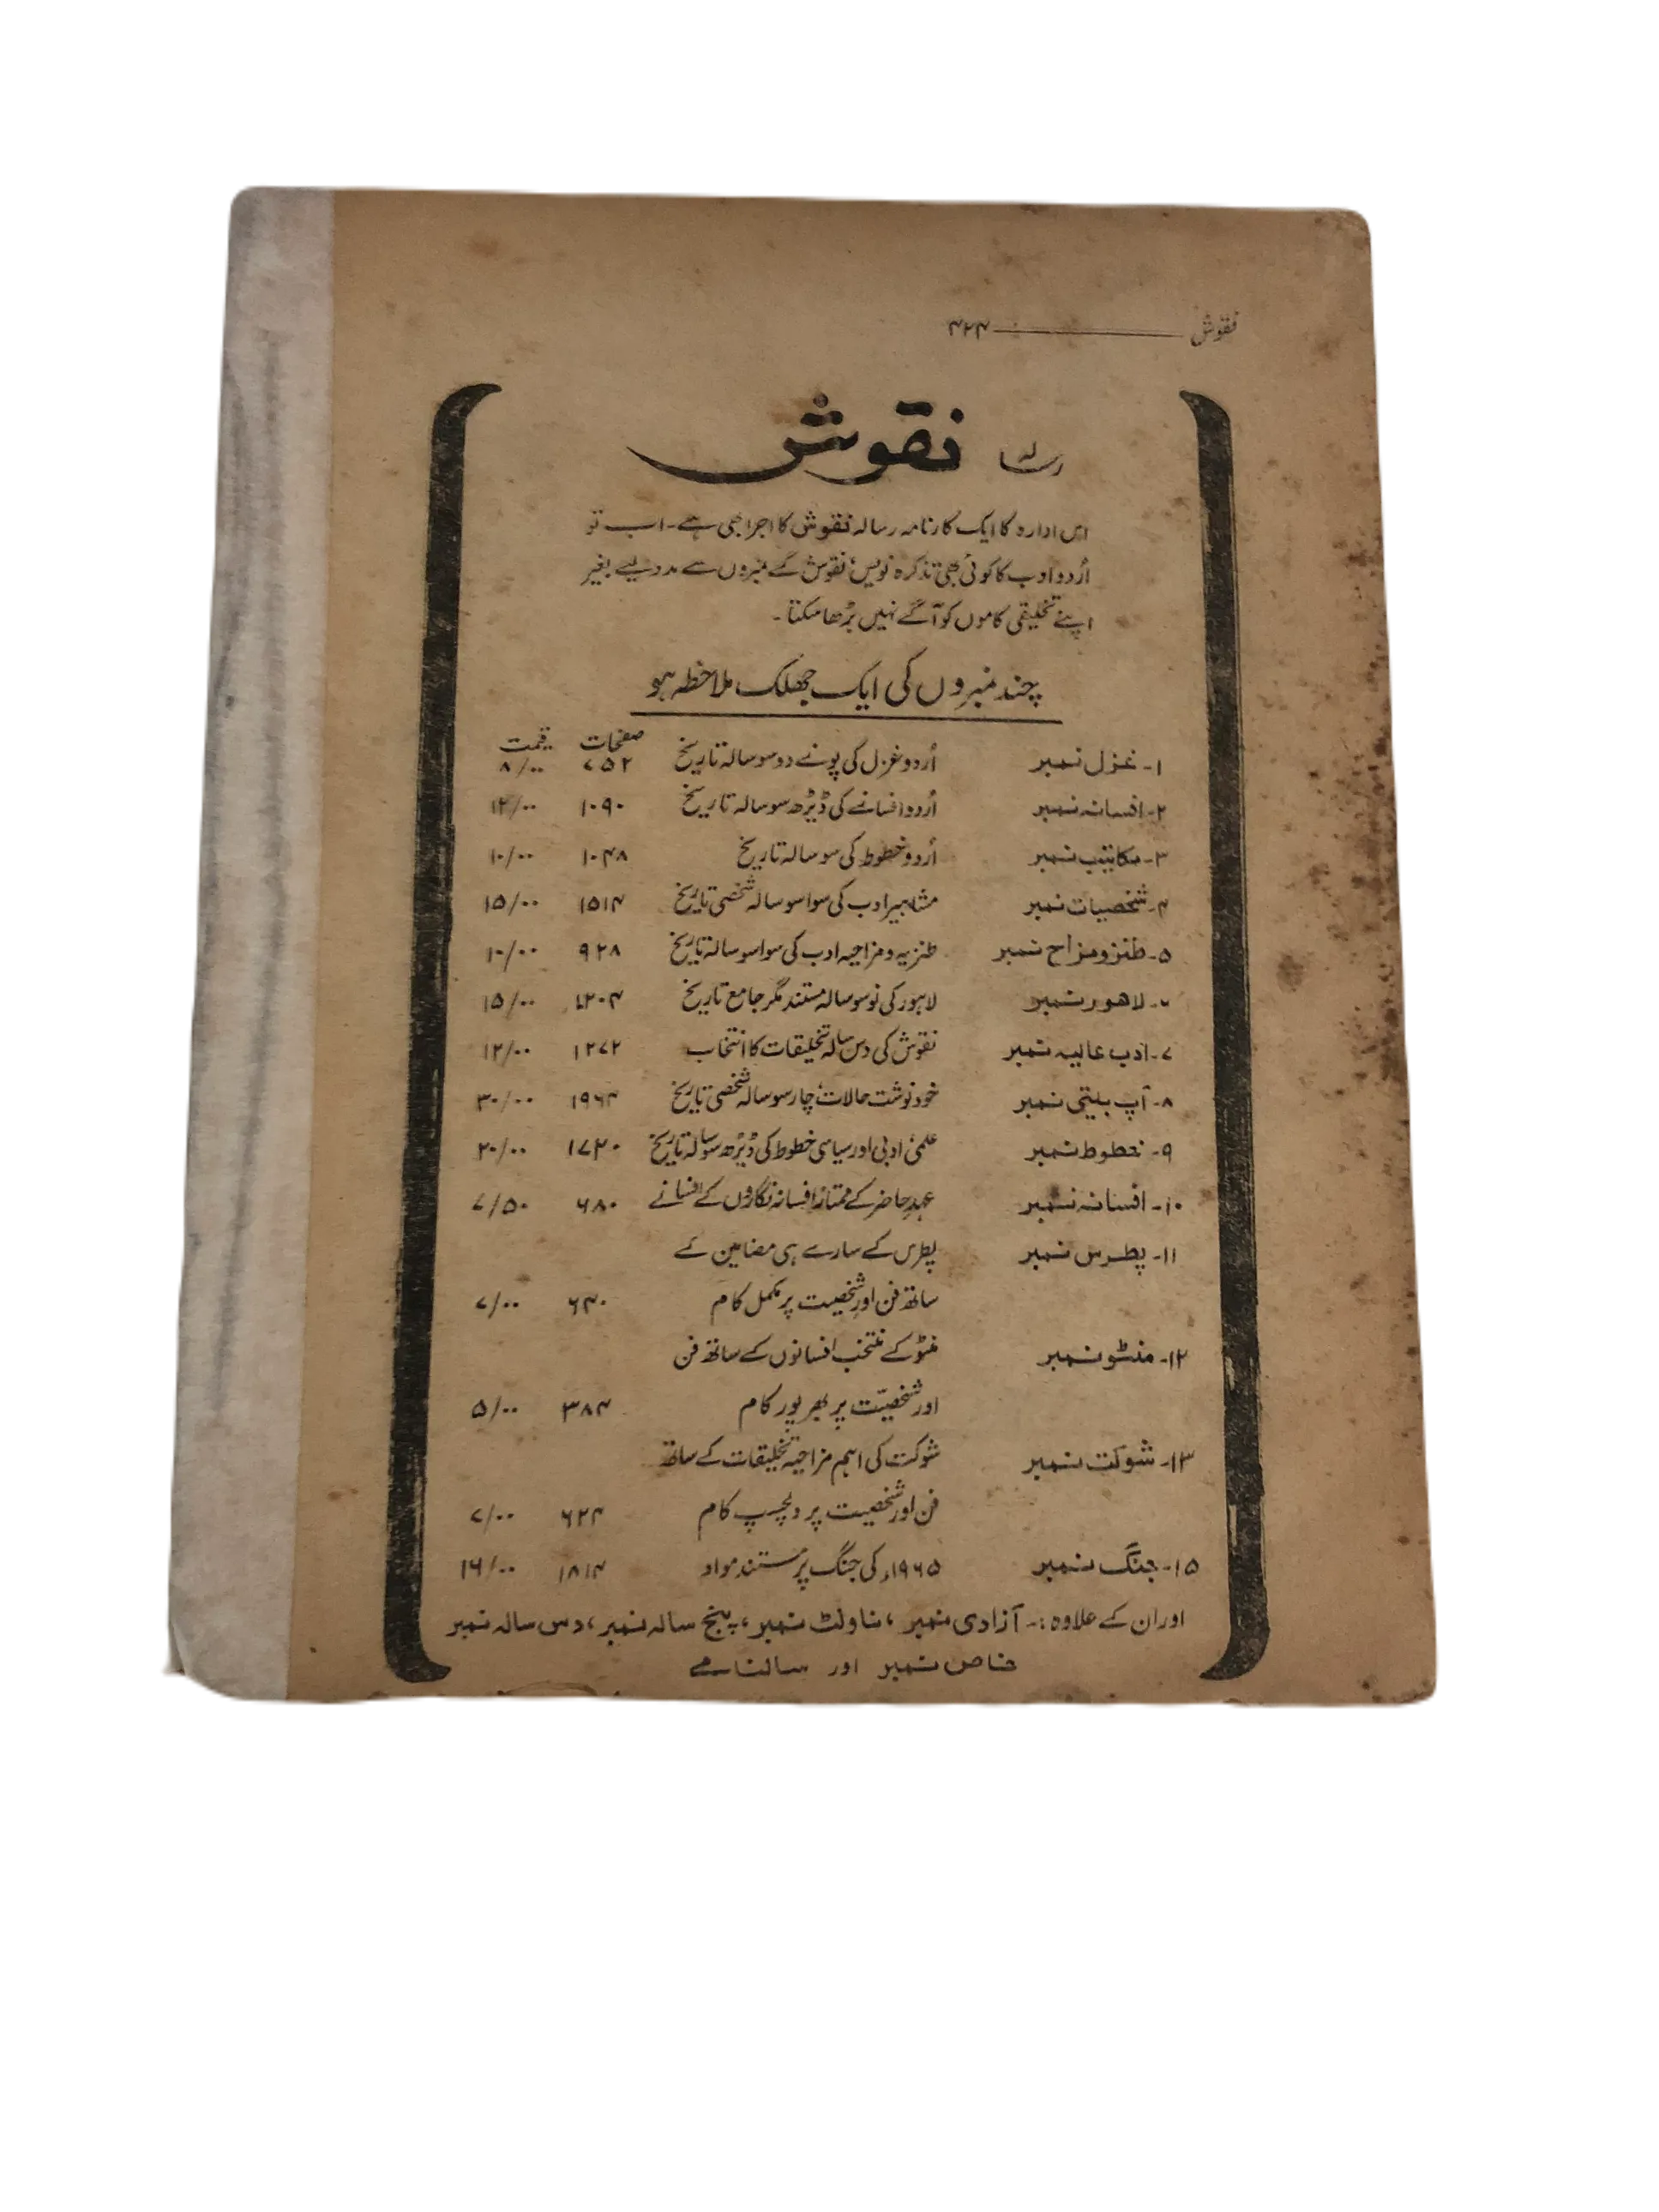 نقوش ــــــــــــ ۴۲۴
رسالہ نقوش
اس ادارہ کا ایک کارنامہ رسالہ نقوش کا اجرا بھی ہے۔ اب تو
اُردو ادب کا کوئی بھی تذکرہ نویس، نقوش کے نمبروں سے مدد لیے بغیر
اپنے تخلیقی کاموں کو آگے نہیں بڑھا سکتا۔
چند نمبروں کی ایک جھلک ملاحظہ ہو
صفحات قیمت
۱۔ غزل نمبر اُردو غزل کی پونے دو سو سالہ تاریخ ۷۵۲ ۸/۰۰
۲۔ افسانہ نمبر اُردو افسانے کی ڈیڑھ سو سالہ تاریخ ۱۰۹۰ ۱۲/۰۰
۳۔ مکاتیب نمبر اُردو خطوط کی سو سالہ تاریخ ۱۰۴۸ ۱۰/۰۰
۴۔ شخصیات نمبر مشاہیر ادب کی سوا سو سالہ شخصی تاریخ ۱۵۱۴ ۱۵/۰۰
۵۔ طنز و مزاح نمبر طنزیہ و مزاحیہ ادب کی سوا سو سالہ تاریخ ۹۲۸ ۱۰/۰۰
۶۔ لاھور نمبر لاہور کی نو سو سالہ مستند مگر جامع تاریخ ۱۲۰۴ ۱۵/۰۰
۷۔ ادب عالیہ نمبر نقوش کی دس سالہ تخلیقات کا انتخاب ۱۲۷۲ ۱۲/۰۰
۸۔ آپ بیتی نمبر خود نوشت حالات، چار سو سالہ شخصی تاریخ ۱۹۶۴ ۳۰/۰۰
۹۔ خطوط نمبر علمی، ادبی اور سیاسی خطوط کی ڈیڑھ سو سالہ تاریخ ۱۷۲۰ ۲۰/۰۰
۱۰۔ افسانہ نمبر عہدِ حاضر کے ممتاز افسانہ نگاروں کے افسانے ۶۸۰ ۷/۵۰
۱۱۔ پطرس نمبر پطرس کے سارے ہی مضامین کے
ساتھ فن اور شخصیت پر مکمل کام ۶۴۰ ۷/۰۰
۱۲۔ منٹو نمبر منٹو کے منتخب افسانوں کے ساتھ فن
اور شخصیّت پر بھرپور کام ۳۸۴ ۵/۰۰
۱۳۔ شوکت نمبر شوکت کی اہم مزاحیہ تخلیقات کے ساتھ
فن اور شخصیت پر دلچسپ کام ۶۲۴ ۷/۰۰
۱۵۔ جنگ نمبر ۱۹۶۵ء کی جنگ پر مستند مواد ۱۸۱۴ ۱۶/۰۰
اور ان کے علاوہ:۔ آزادی نمبر، ناولٹ نمبر، پنج سالہ نمبر، دس سالہ نمبر
خاص نمبر اور سالنامے